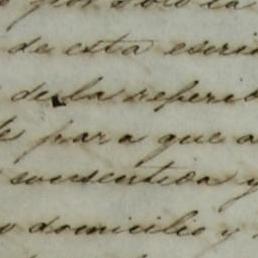 por solo la
de esta escri
de la referid
para que a
consentida y
domicilio y